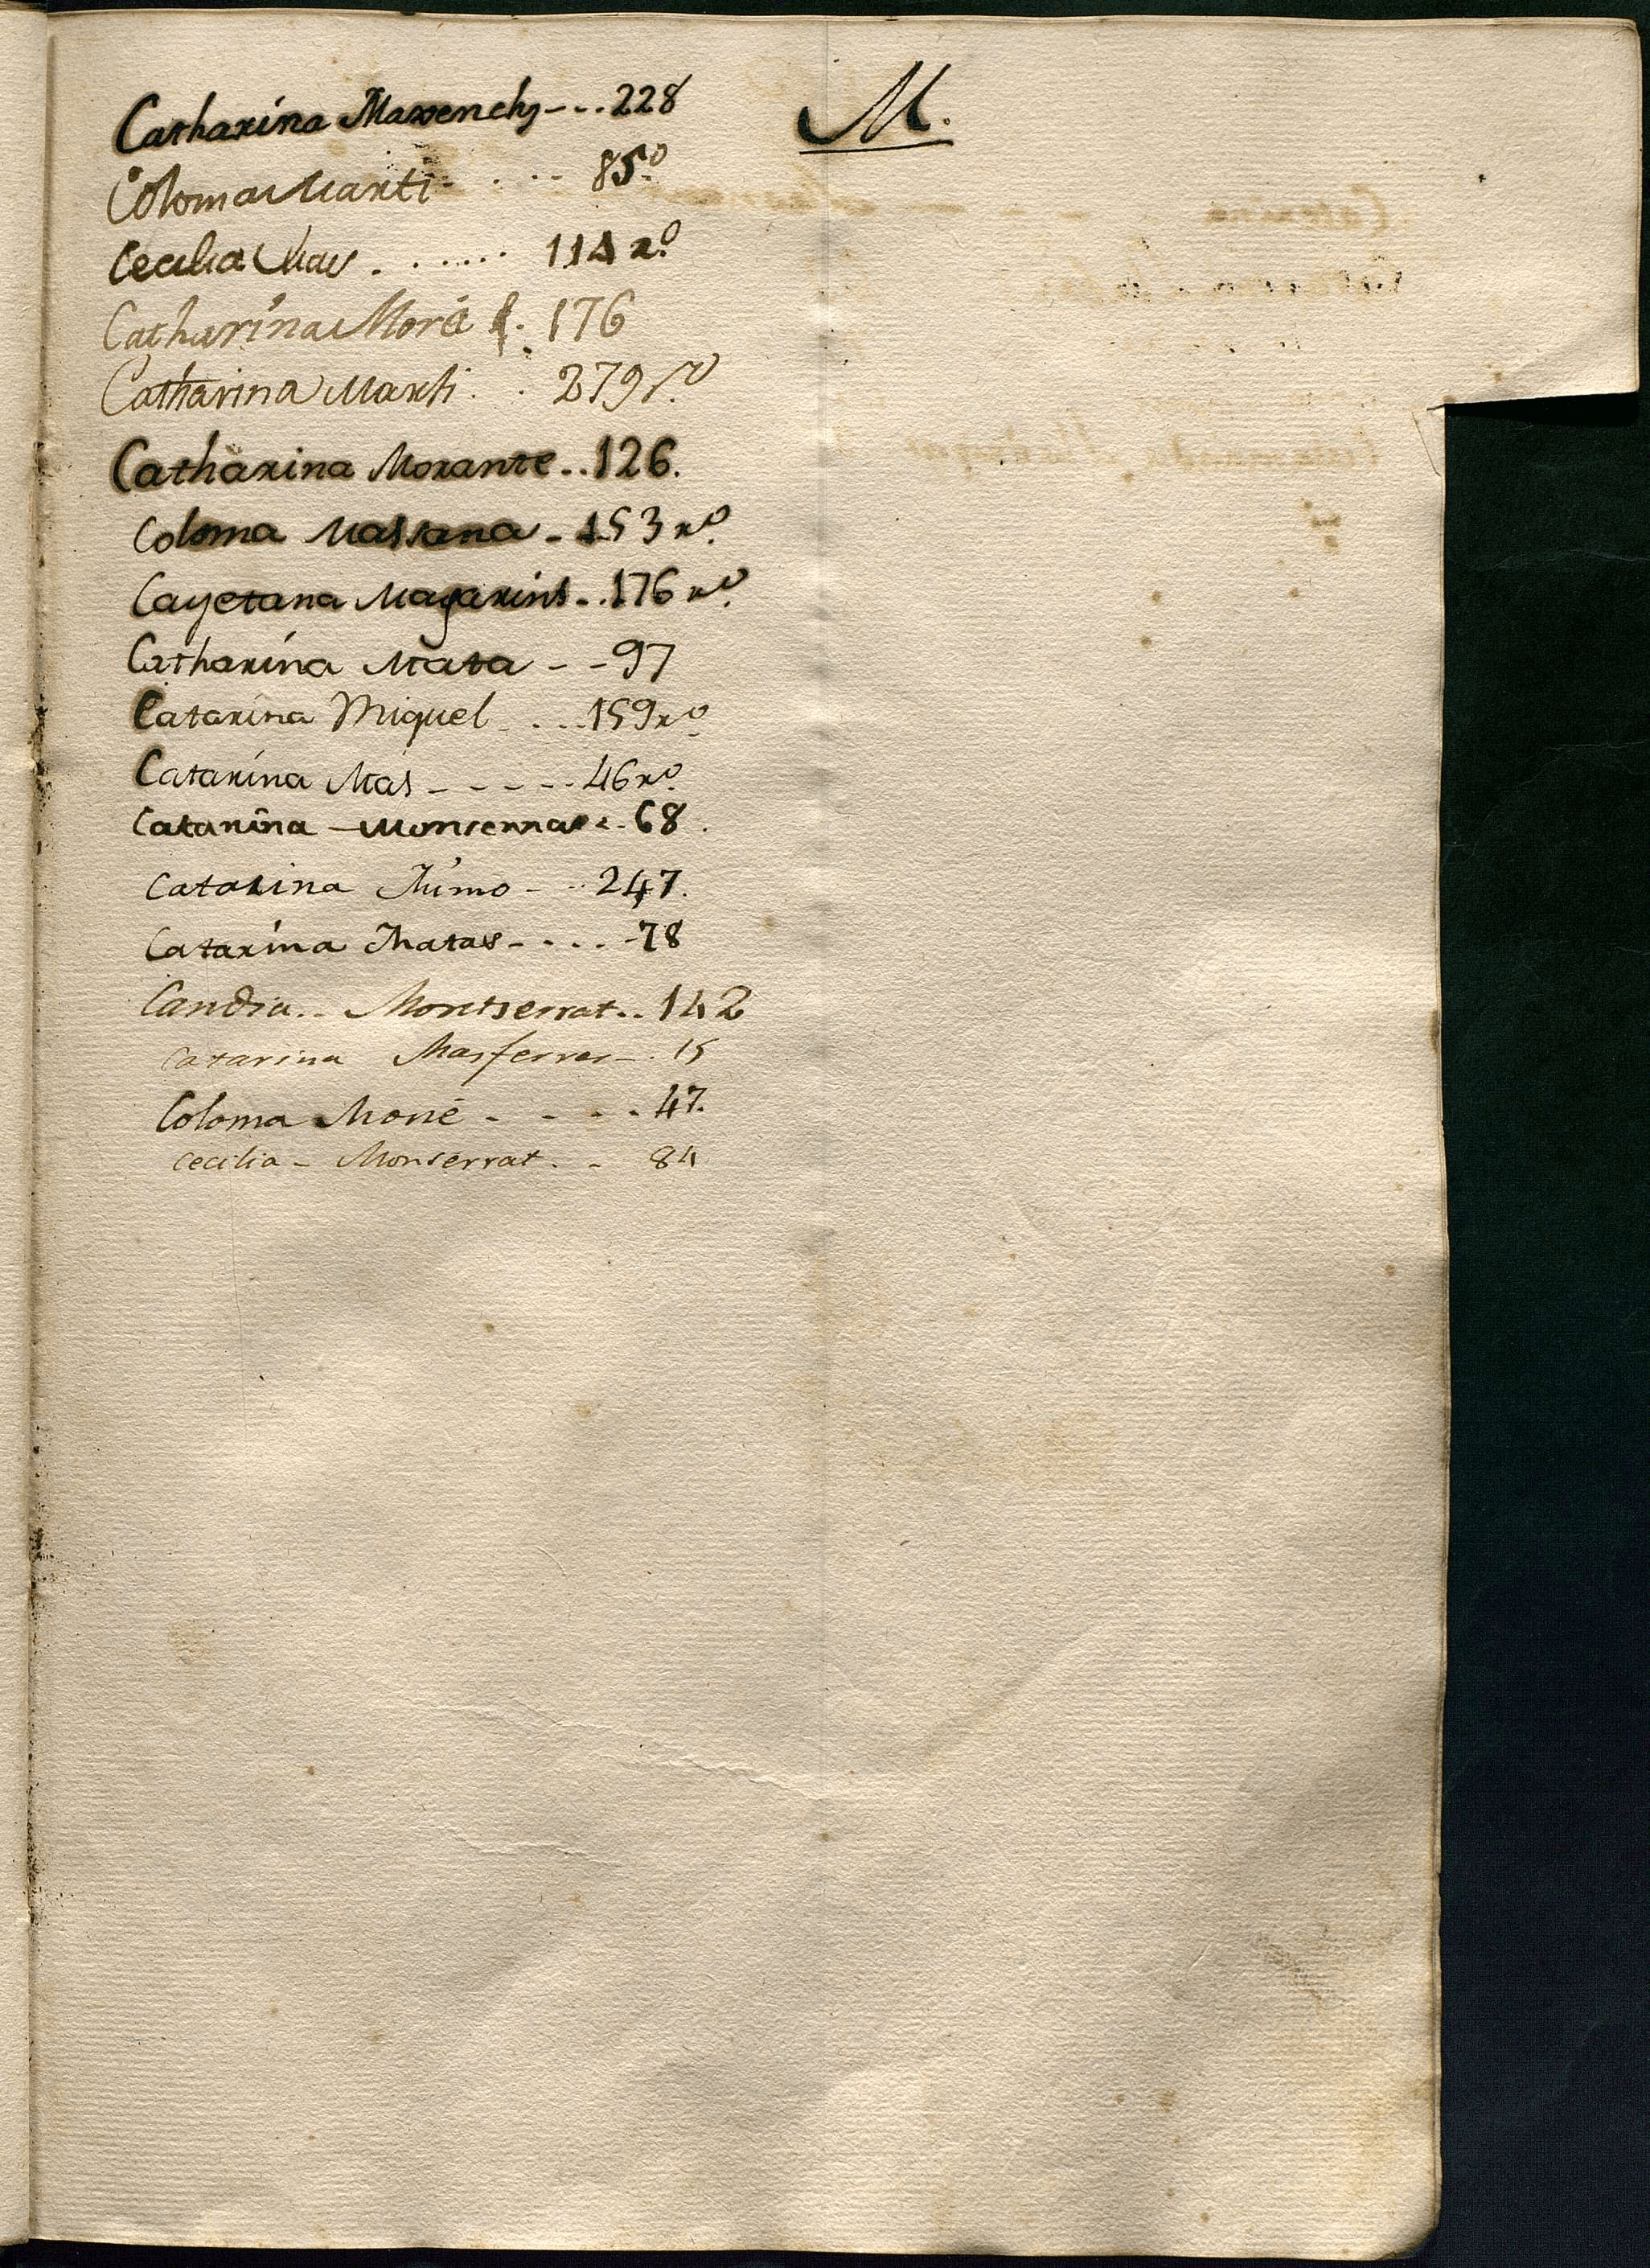 M.
Catharina Marrenchs - - . . 228
Coloma Marti - . . . . 85.º
Cecilia Mas . . . . . . . 114 rº
Catharina Moré f. 176
Catharina Marti . . 279 rº
Catharina Morante . . 126.
Coloma Massana - 153 rº
Cayetana Magarins - . . 176 rº
Catharina Mata - - 97
Catarina Miquel . . . . 159 rº
Catarina Mas - - - - - 46 rº
Catarina - Monserrat - - 68.
Catarina Mimó - - 247.
Catarina Matas - . . . - 78
Candia . . Montserrat . . 142
Catarina Masferrer - . 15
Coloma Moné - - - - 47.
Cecilia - Monserrat . - 84